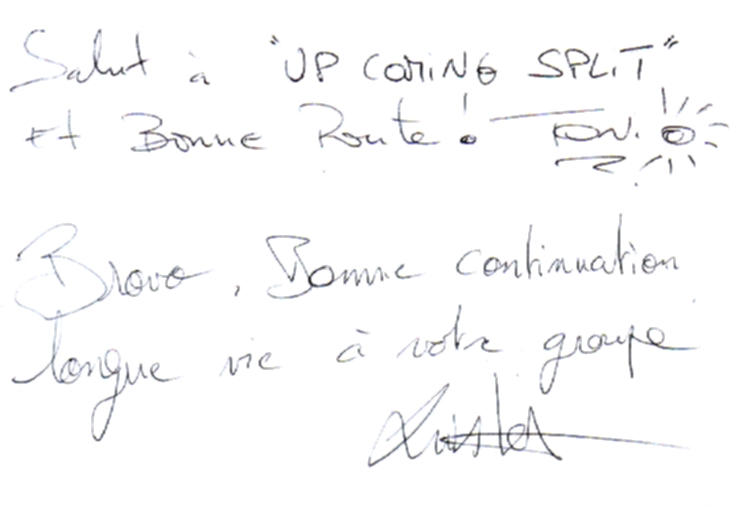 Salut à "UP COMING SPLIT"
et Bonne Route !
Bravo, Bonne continuation
longue vie à votre groupe